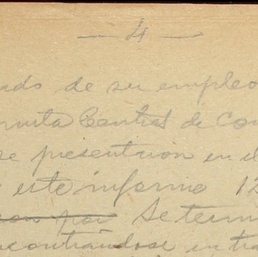 — 4 —
ado de su empleo
Central de Con
se presentaron en el
este informe 12
por Se term
contrándose en tra